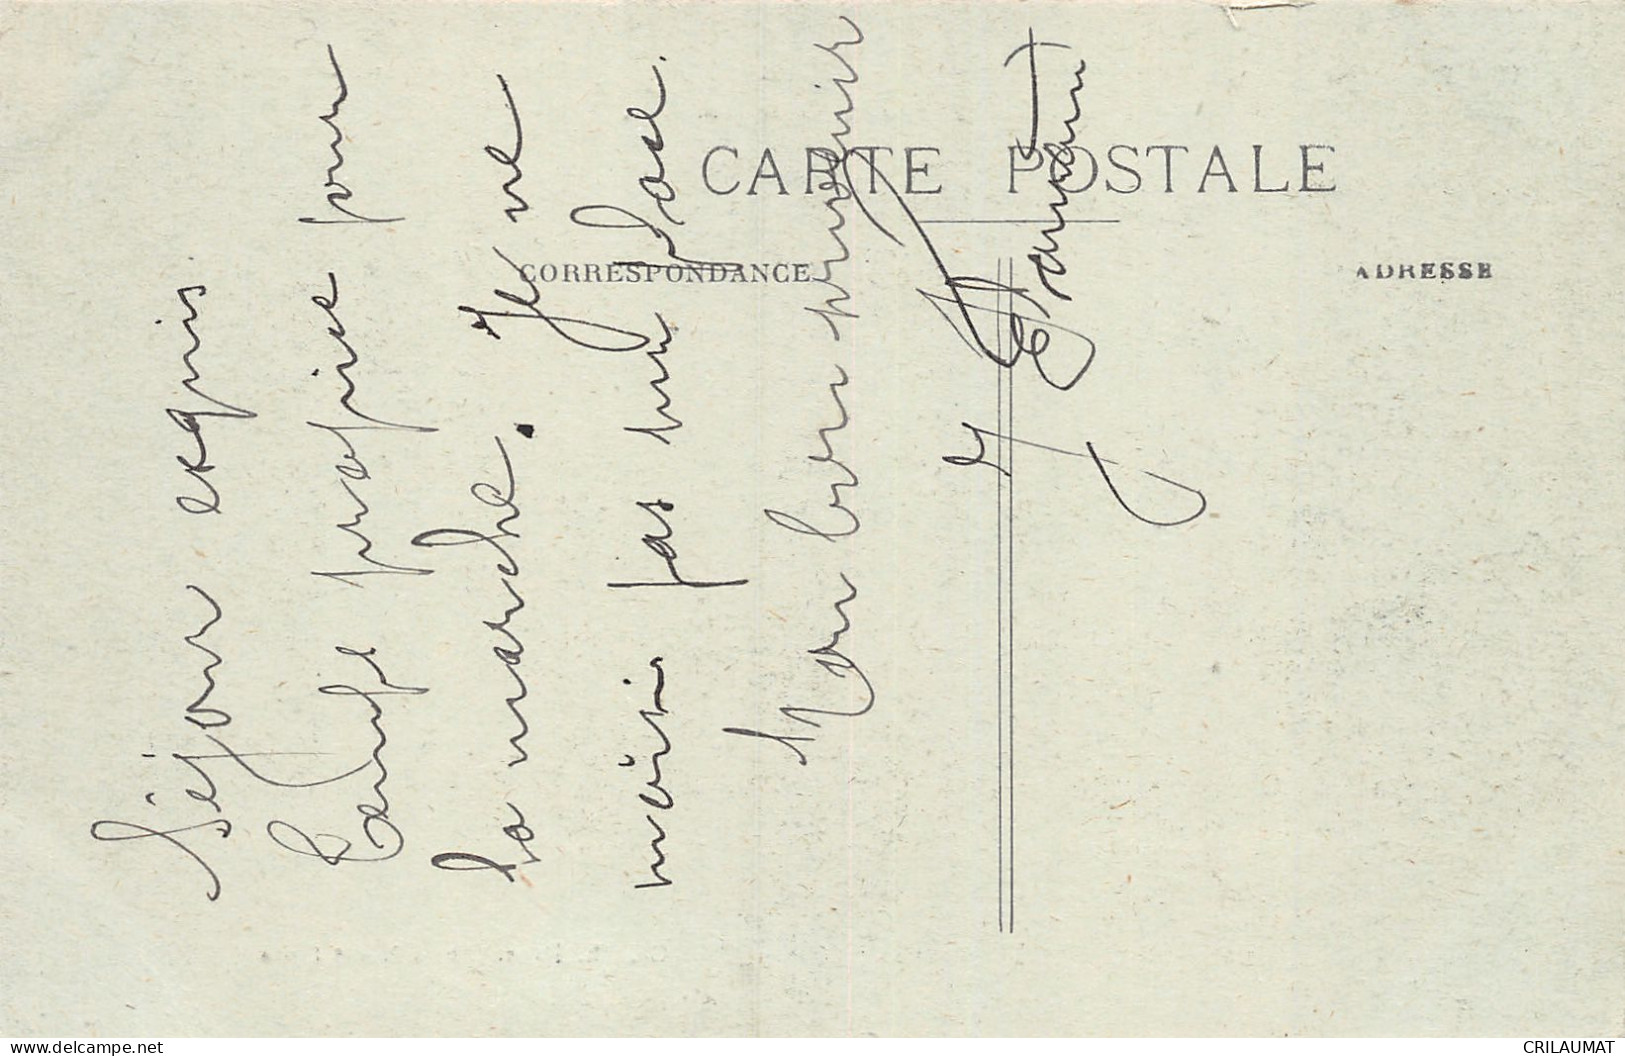 CARTE POSTALE
CORRESPONDANCE
ADRESSE
Séjour exquis
Temps propice pour
la marche. Je ne
moisis pas sur place.
Mon bon souvenir
CRILAUMAT